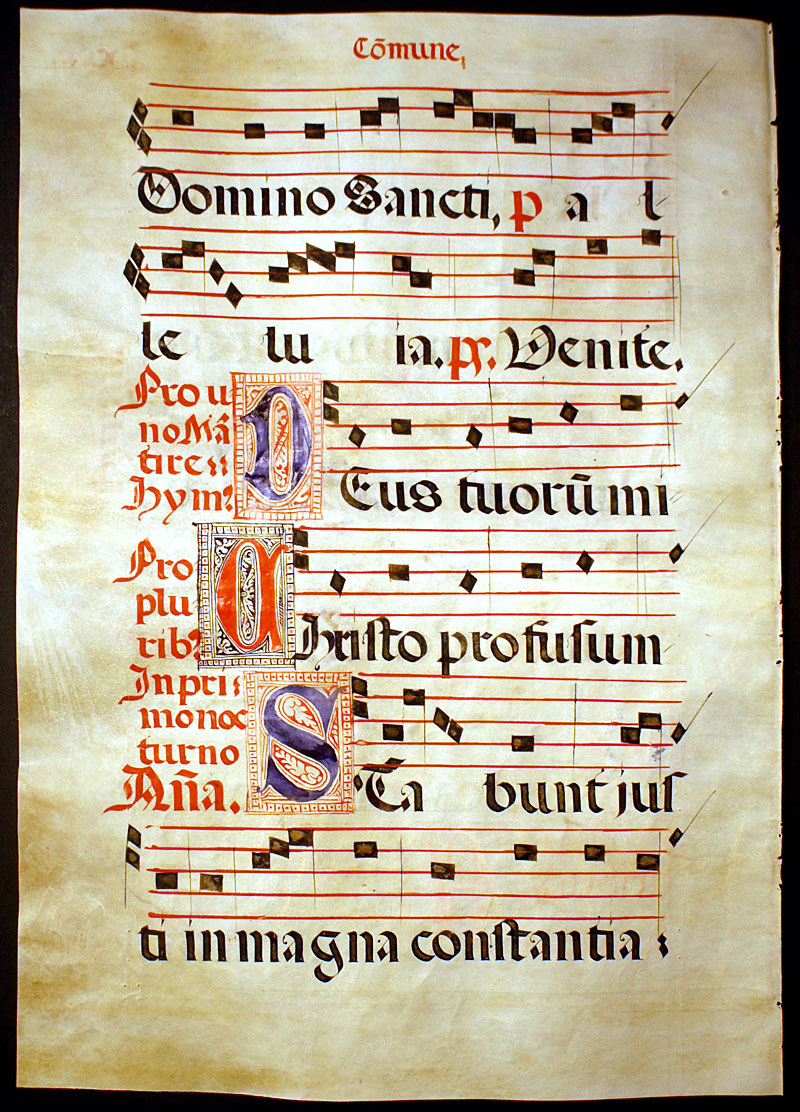 Cōmune,
Domino Sancti, p a l
le lu ia. ps. Venite.
Pro u
no Mā
tire ::
hym?
DEus tuorū mi
Pro
plu
rib?
Christo profusum
In pri:
mo noc
turno
Aña.
STa bunt jus
ti in magna constantia :